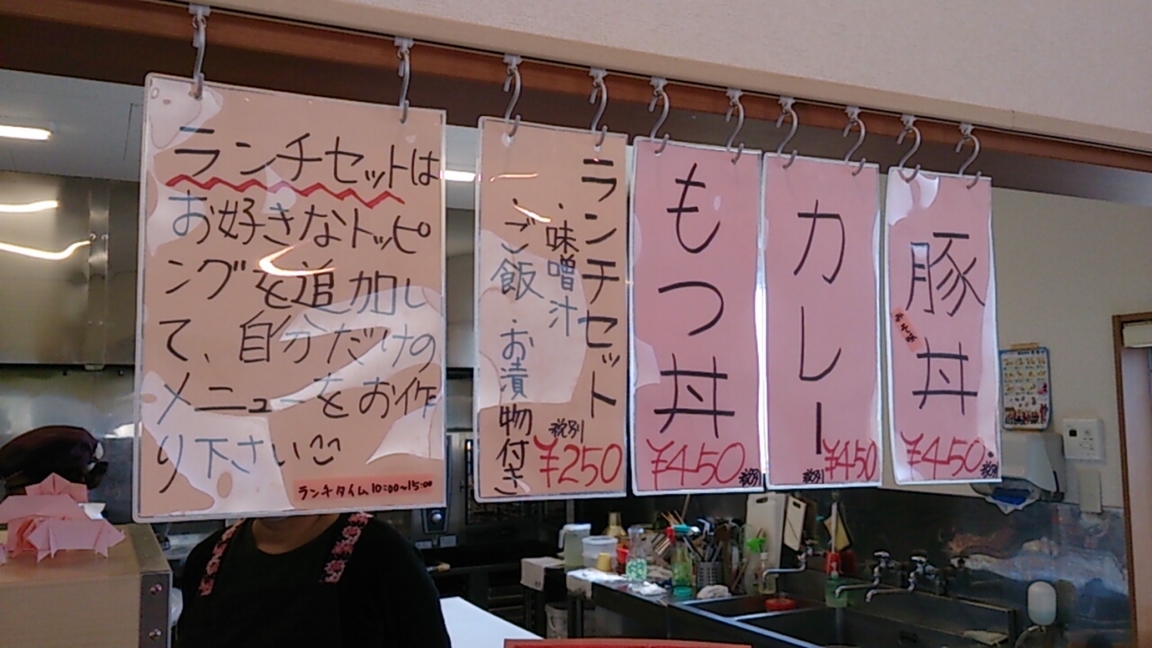 ランチセットは
お好きなトッピ
ングを追加し
て、自分だけの
メニューをお作
り下さい
ランチタイム10:00~15:00
ランチセット
・味噌汁
・ご飯・お漬物付き
税別
¥250
もつ丼
¥450
税別
カレー
¥450
税別
豚丼
¥450
税別